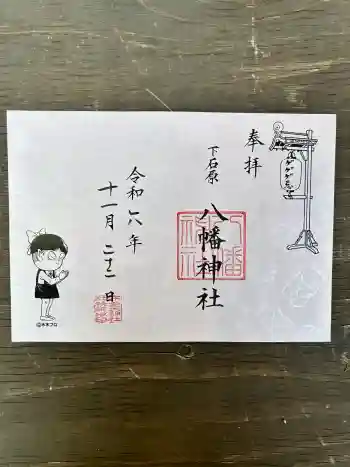 奉拝
下石原
八幡神社
八幡神社
令和六年
十一月二十二日
©水木プロ